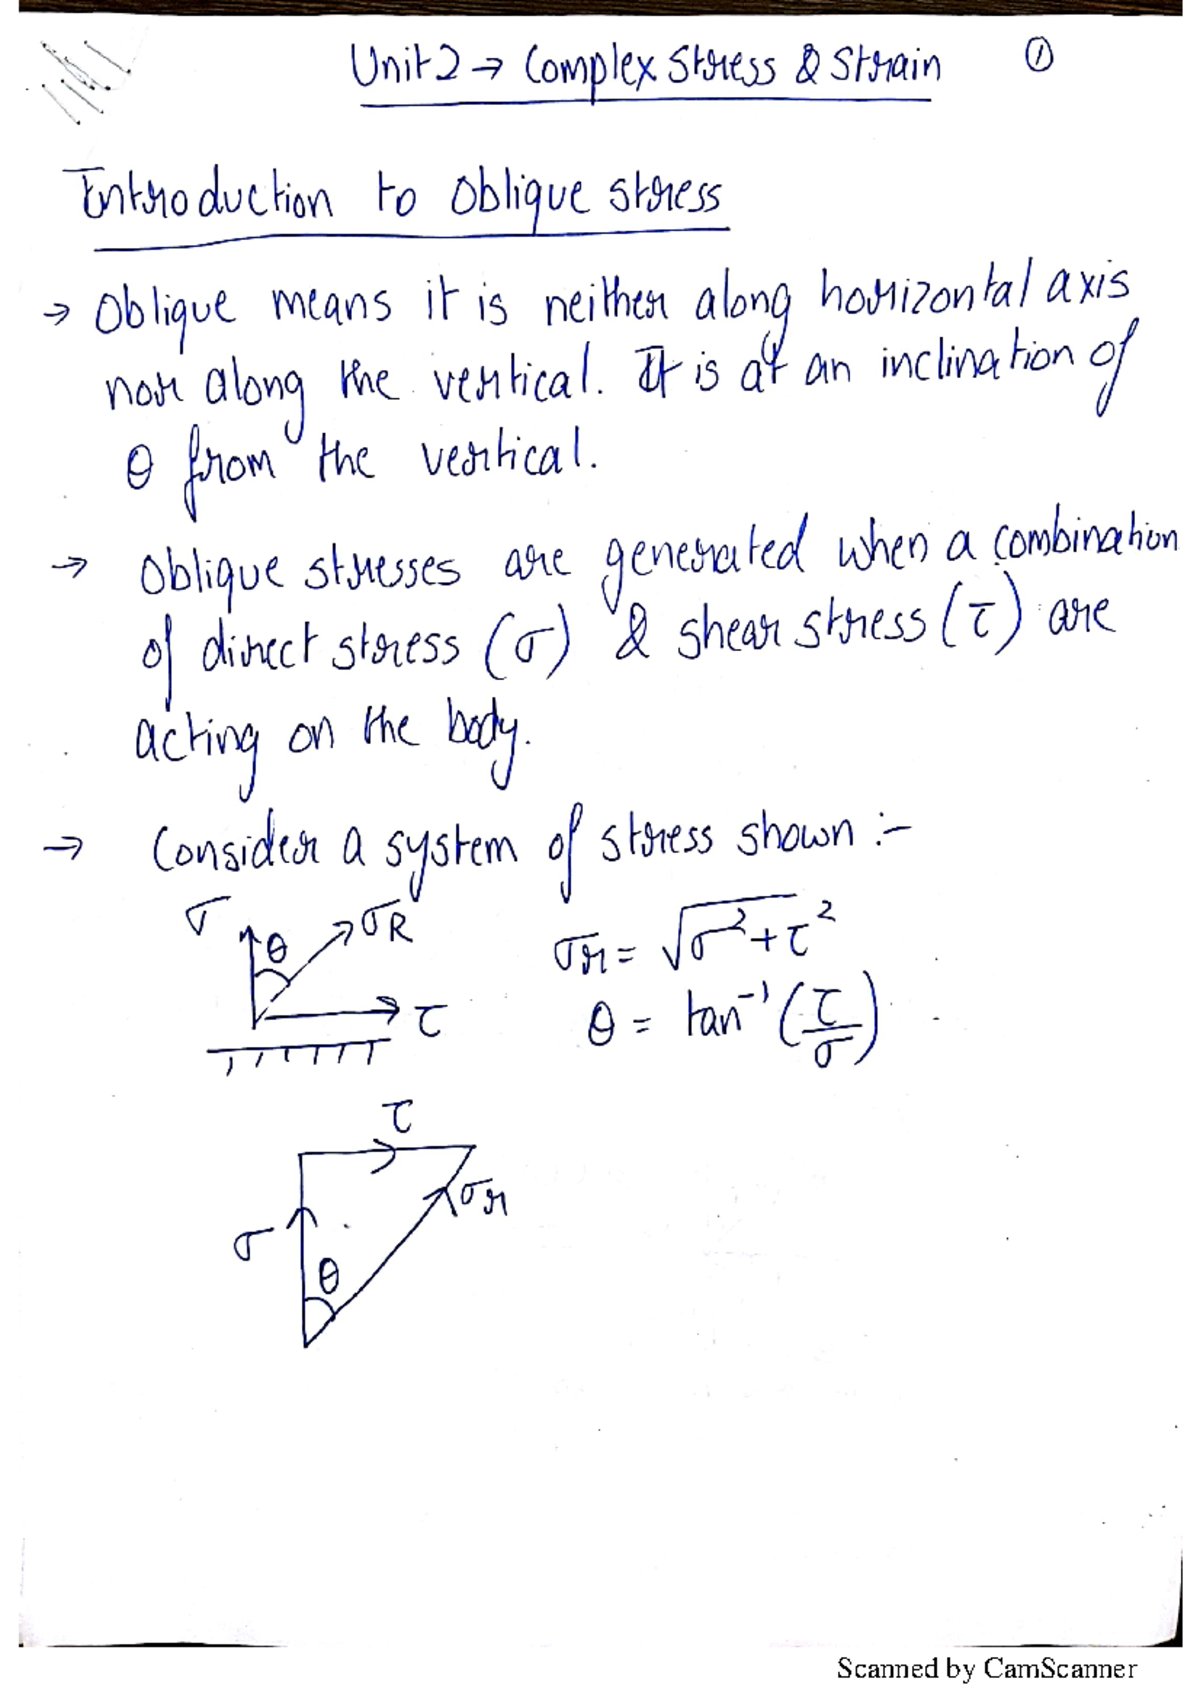 Unit 2 → Complex Stress & Strain ①
Introduction to Oblique stress
→ Oblique means it is neither along horizontal axis
nor along the vertical. It is at an inclination of
θ from the vertical.
→ Oblique stresses are generated when a combination
of direct stress (σ) & shear stress (τ) are
acting on the body.
→ Consider a system of stress shown :-
σ θ σR τ
σr = √σ²+τ²
θ = tan⁻¹ (τ/σ)
τ
σ θ σr
Scanned by CamScanner